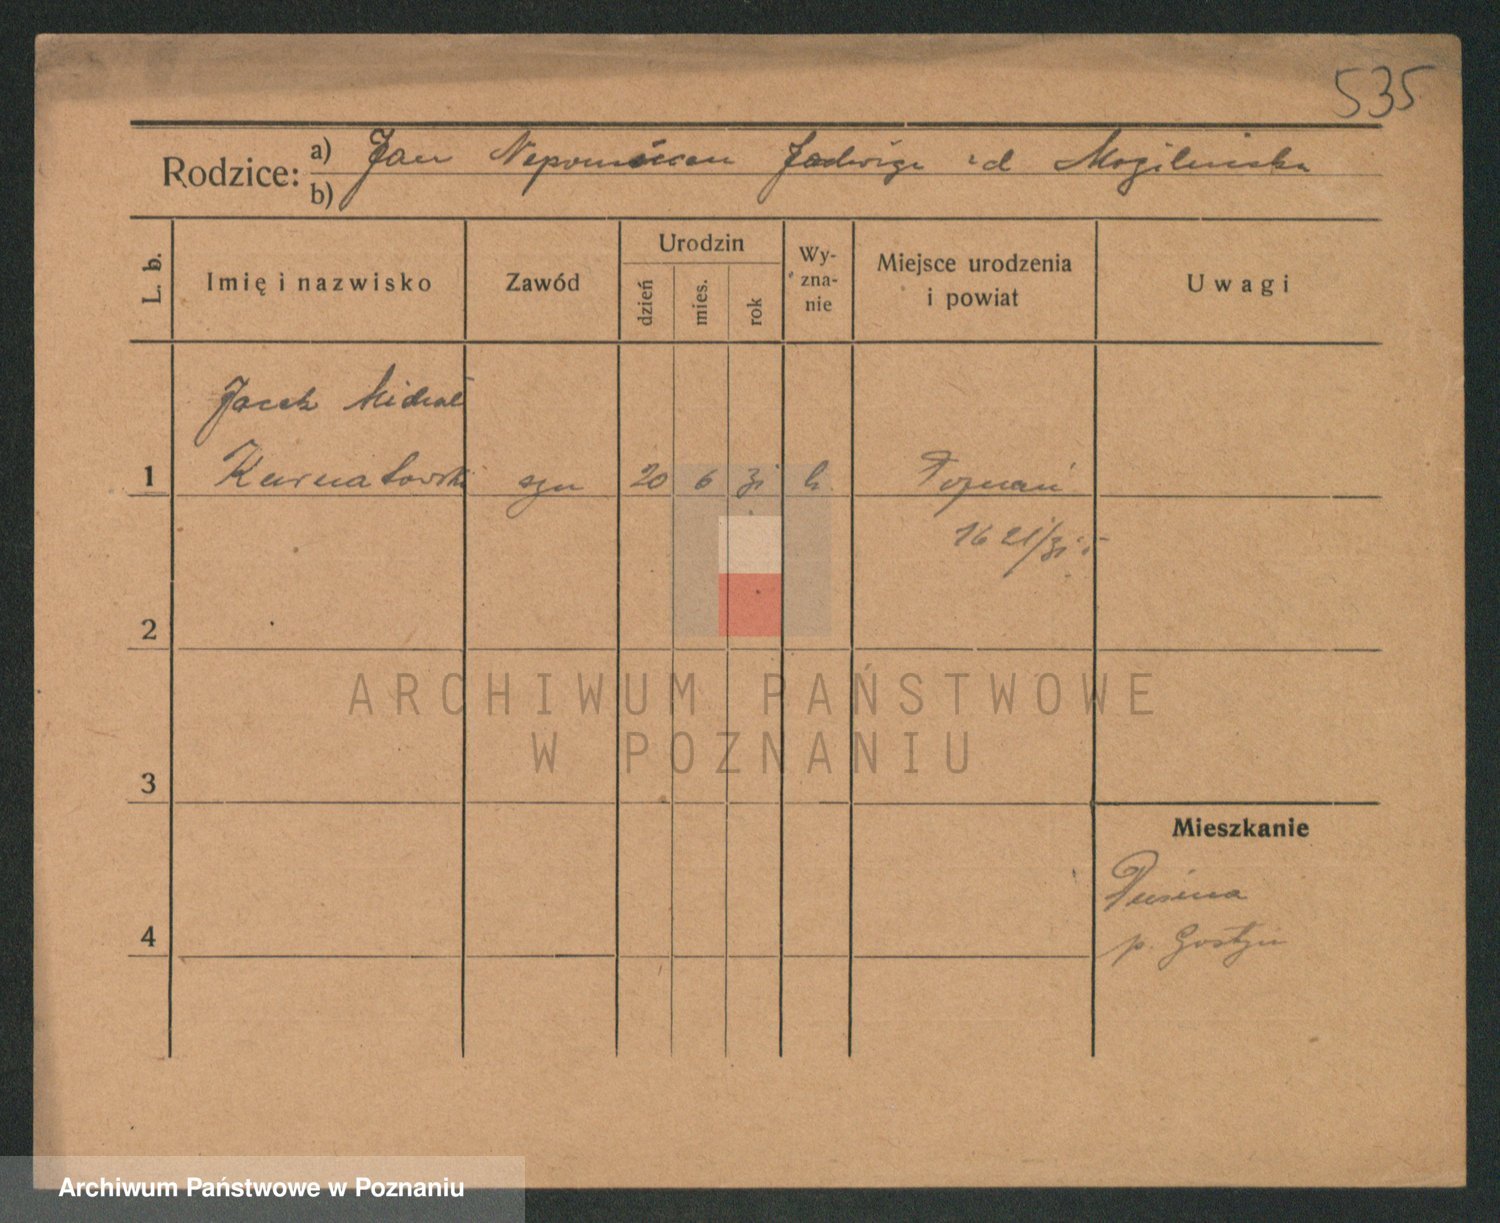 535
Rodzice: a) Jan Nepomucen Jadwiga zd Mogilnicka
b)
L. b. Imię i nazwisko Zawód Urodzin dzień mies. rok Wy-zna-nie Miejsce urodzenia i powiat Uwagi
Jacek Michał
1 Kurnatowski syn 20 6 31 k. Poznań
16 21/31
2
ARCHIWUM PAŃSTWOWE
W POZNANIU
3
Mieszkanie
Dusina
4 p. Gostyń
Archiwum Państwowe w Poznaniu